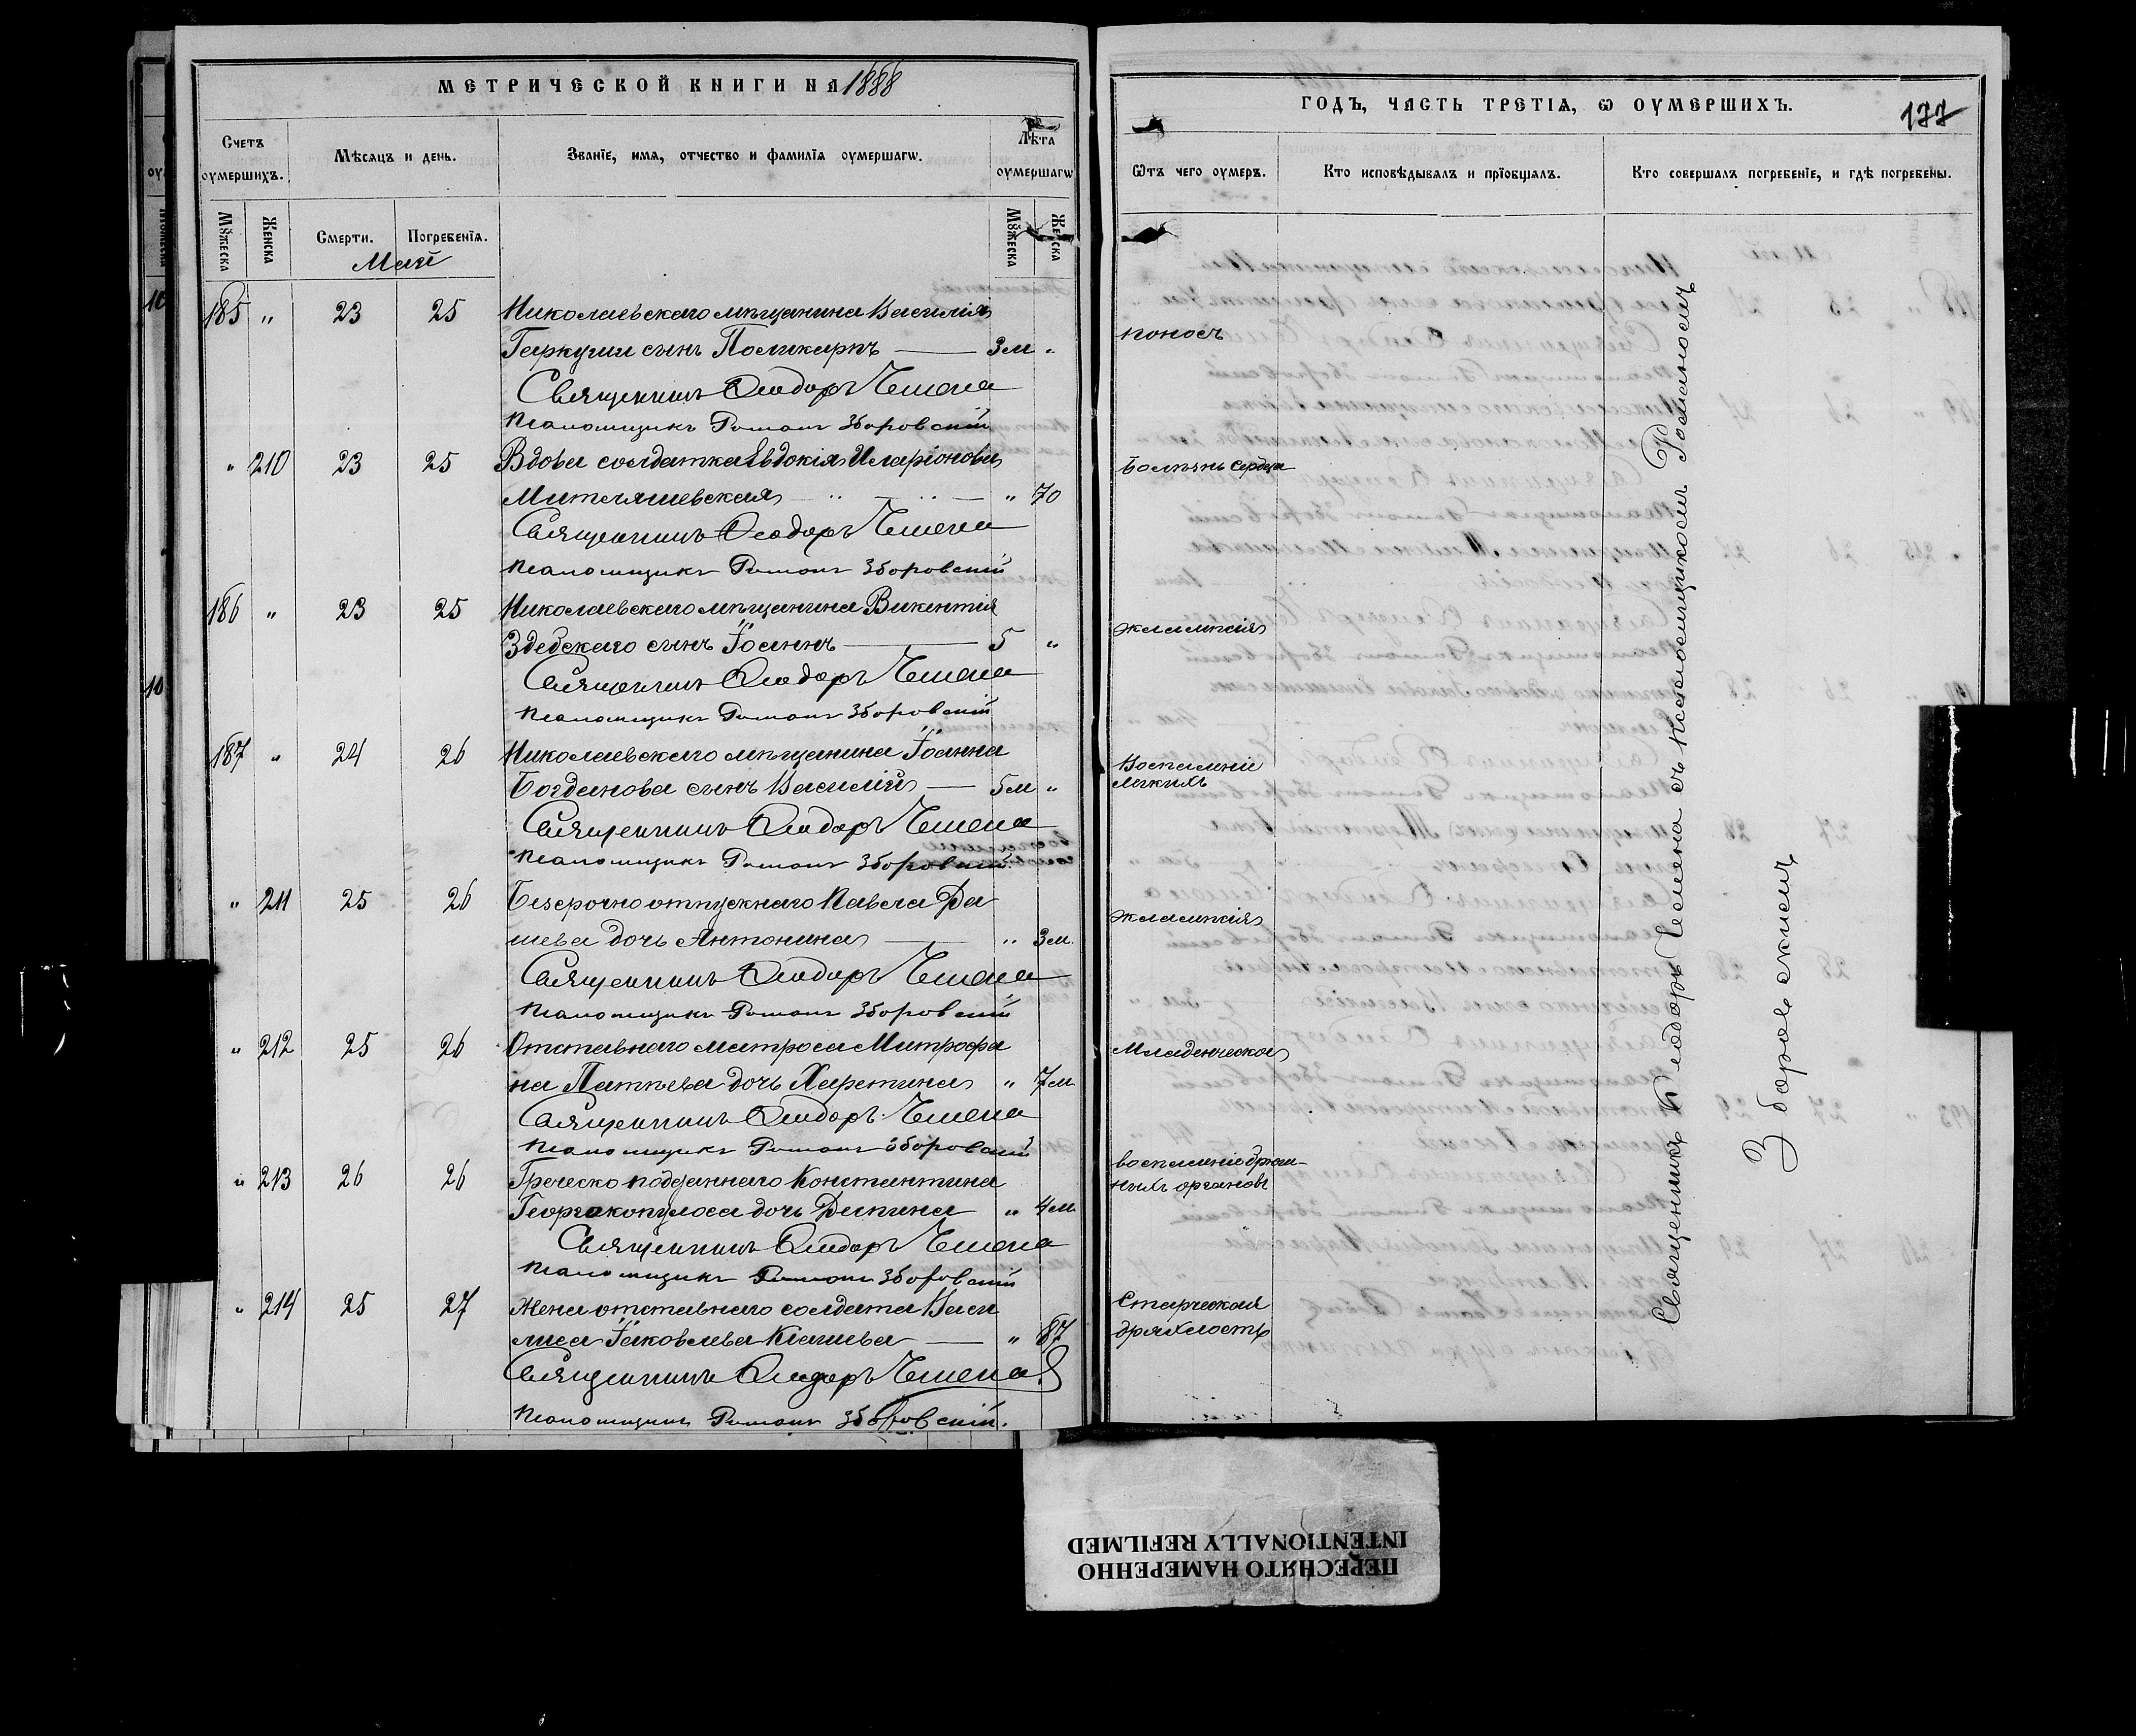 МЕТРИЧЕСКОЙ КНИГИ НА 1888
Счетъ оумершихъ.
Мѣсяцъ и день.
Званїе, имя, отчество и фамилїя оумершагѡ.
Лѣта оумершагѡ
Мꙋжеска
Женска
Смерти.
Погребенїя.
Мꙋжеска
Женска
Май
185 " 23 25 Николаевскаго мѣщанина Василія
Гаркуши сынъ Поликарпъ — 3 м "
Священникъ Ѳеодоръ Чемена
Псаломщикъ Романъ Зборовскій
" 210 23 25 Вдова солдатка Евдокія Иларіонова
" 70
Священникъ Ѳеодоръ Чемена
Псаломщикъ Романъ Зборовскій
186 " 23 25 Николаевскаго мѣщанина Викентія
Здебскаго сынъ Іоаннъ — 5 "
Священникъ Ѳеодоръ Чемена
Псаломщикъ Романъ Зборовскій
187 " 24 26 Николаевскаго мѣщанина Іоанна
Богданова сынъ Василій — 5 м "
Священникъ Ѳеодоръ Чемена
Псаломщикъ Романъ Зборовскій
" 211 25 26 Безсрочно отпускнаго Павла Да
шева дочь Антонина — " 3 м.
Священникъ Ѳеодоръ Чемена
Псаломщикъ Романъ Зборовскій
" 212 25 26 Отставнаго матроса Митрофа
на Лаптева дочь Харитина " 7 м
Священникъ Ѳеодоръ Чемена
Псаломщикъ Романъ Зборовскій
" 213 26 26 Греческо подданнаго Константина
Георгакопулоса дочь " 4 м
Священникъ Ѳеодоръ Чемена
Псаломщикъ Романъ Зборовскій
" 214 25 27 Жена отставнаго солдата Васи
лиса Іаковлева — " 87
Священникъ Ѳеодоръ Чемена
Псаломщикъ Романъ Зборовскій.
ГОДЪ, ЧАСТЬ ТРЕТІѦ, Ѡ ОУМЕРШИХЪ.
177
Ѿтъ чего оумеръ.
Кто исповѣдывалъ и прїобщалъ.
Кто совершалъ погребенїе, и гдѣ погребены.
поносъ
болѣзнь сердца
эклампсія
Воспаленіе
легкихъ
эклампсія
Младенческая
воспаленіе дыха-
ныхъ органовъ
Старческая
дряхлость
Священникъ Ѳеодоръ Чемена съ псаломщикомъ Романомъ
Зборовскимъ
ПЕРЕСНЯТО НАМЕРЕННО
INTENTIONALLY REFILMED